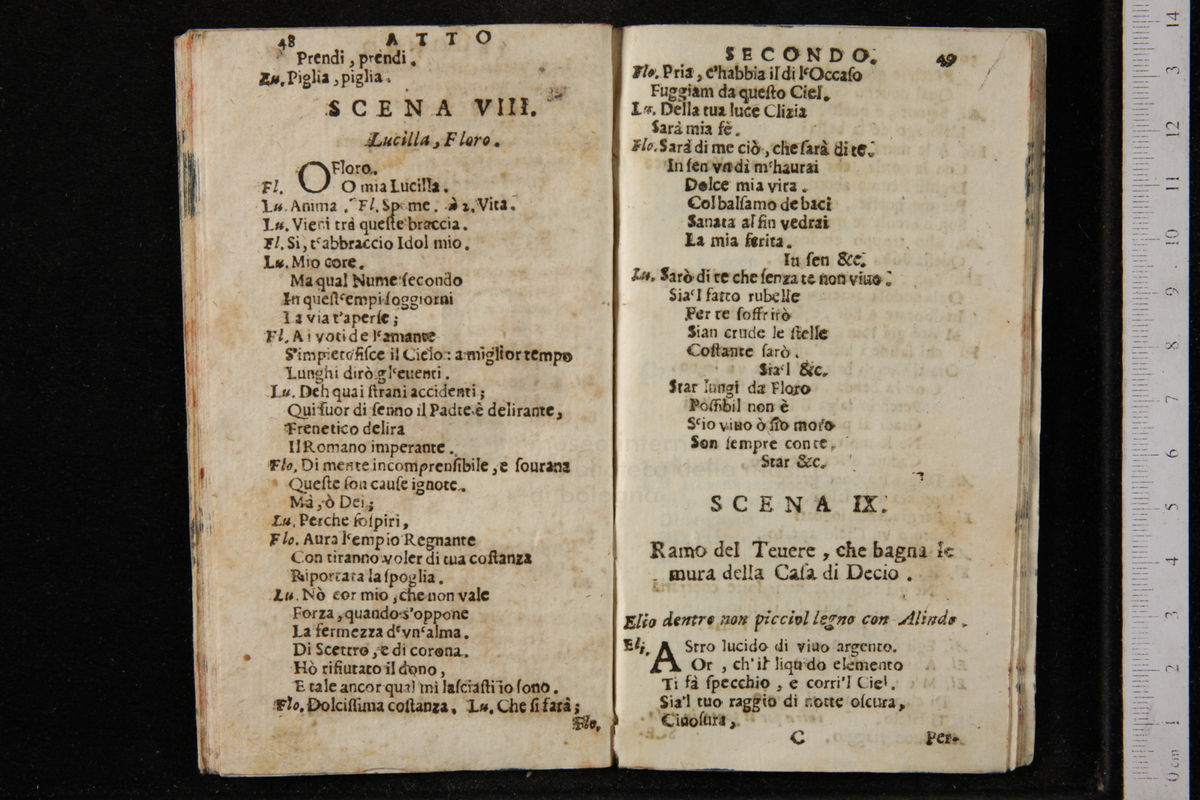 48 ATTO
Prendi, prendi.
Lu. Piglia, piglia.
SCENA VIII.
Lucilla, Floro.
O Floro.
Fl. O mia Lucilla.
Lu. Anima. Fl. Speme. à 2. Vita.
Lu. Vieni trà queſte braccia.
Fl. Si, t'abbraccio Idol mio.
Lu. Mio core.
Ma qual Nume ſecondo
In queſt'empi ſoggiorni
La via t'aperſe;
Fl. A i voti de l'amante
S'impietoſiſce il Cielo: a miglior tempo
Lunghi dirò gl'euenti.
Lu. Deh quai ſtrani accidenti;
Qui fuor di ſenno il Padre è delirante,
Frenetico delira
Il Romano imperante.
Flo. Di mente incomprenſibile, e ſourana
Queſte ſon cauſe ignote.
Mà, ò Dei;
Lu. Perche ſoſpiri,
Flo. Aura l'empio Regnante
Con tiranno voler di tua coſtanza
Riportata la ſpoglia.
Lu. Nò cor mio, che non vale
Forza, quando s'oppone
La fermezza d'vn'alma.
Di Scettro, e di corona.
Hò rifiutato il dono,
E tale ancor qual mi laſciaſti io ſono.
Flo. Dolciſſima coſtanza. Lu. Che ſi farà;
Flo.
SECONDO. 49
Flo. Pria, c'habbia il di l'Occaſo
Fuggiam da queſto Ciel.
Lu. Della tua luce Clizia
Sarà mia fè.
Flo. Sarà di me ciò, che ſarà di te.
In ſen vn dì m'haurai
Dolce mia vita.
Col balſamo de baci
Sanata al fin vedrai
La mia ferita.
In ſen &c.
Lu. Sarò di te che ſenza te non viuo.
Sia'l fatto rubelle
Per te ſoffrirò
Sian crude le ſtelle
Coſtante ſarò.
Sia'l &c.
Star lungi da Floro
Poſſibil non è
S'io viuo ò ſto moro
Son ſempre con te.
Star &c.
SCENA IX.
Ramo del Teuere, che bagna le
mura della Caſa di Decio.
Elio dentro non picciol legno con Alindo.
Eli. AStro lucido di viuo argento.
Or, ch'il liquido elemento
Ti fà ſpecchio, e corri'l Ciel.
Sia'l tuo raggio di notte oſcura,
Cinoſura,
C Per-
14
3
12
11
10
9
8
7
6
5
4
3
2
1
0 cm